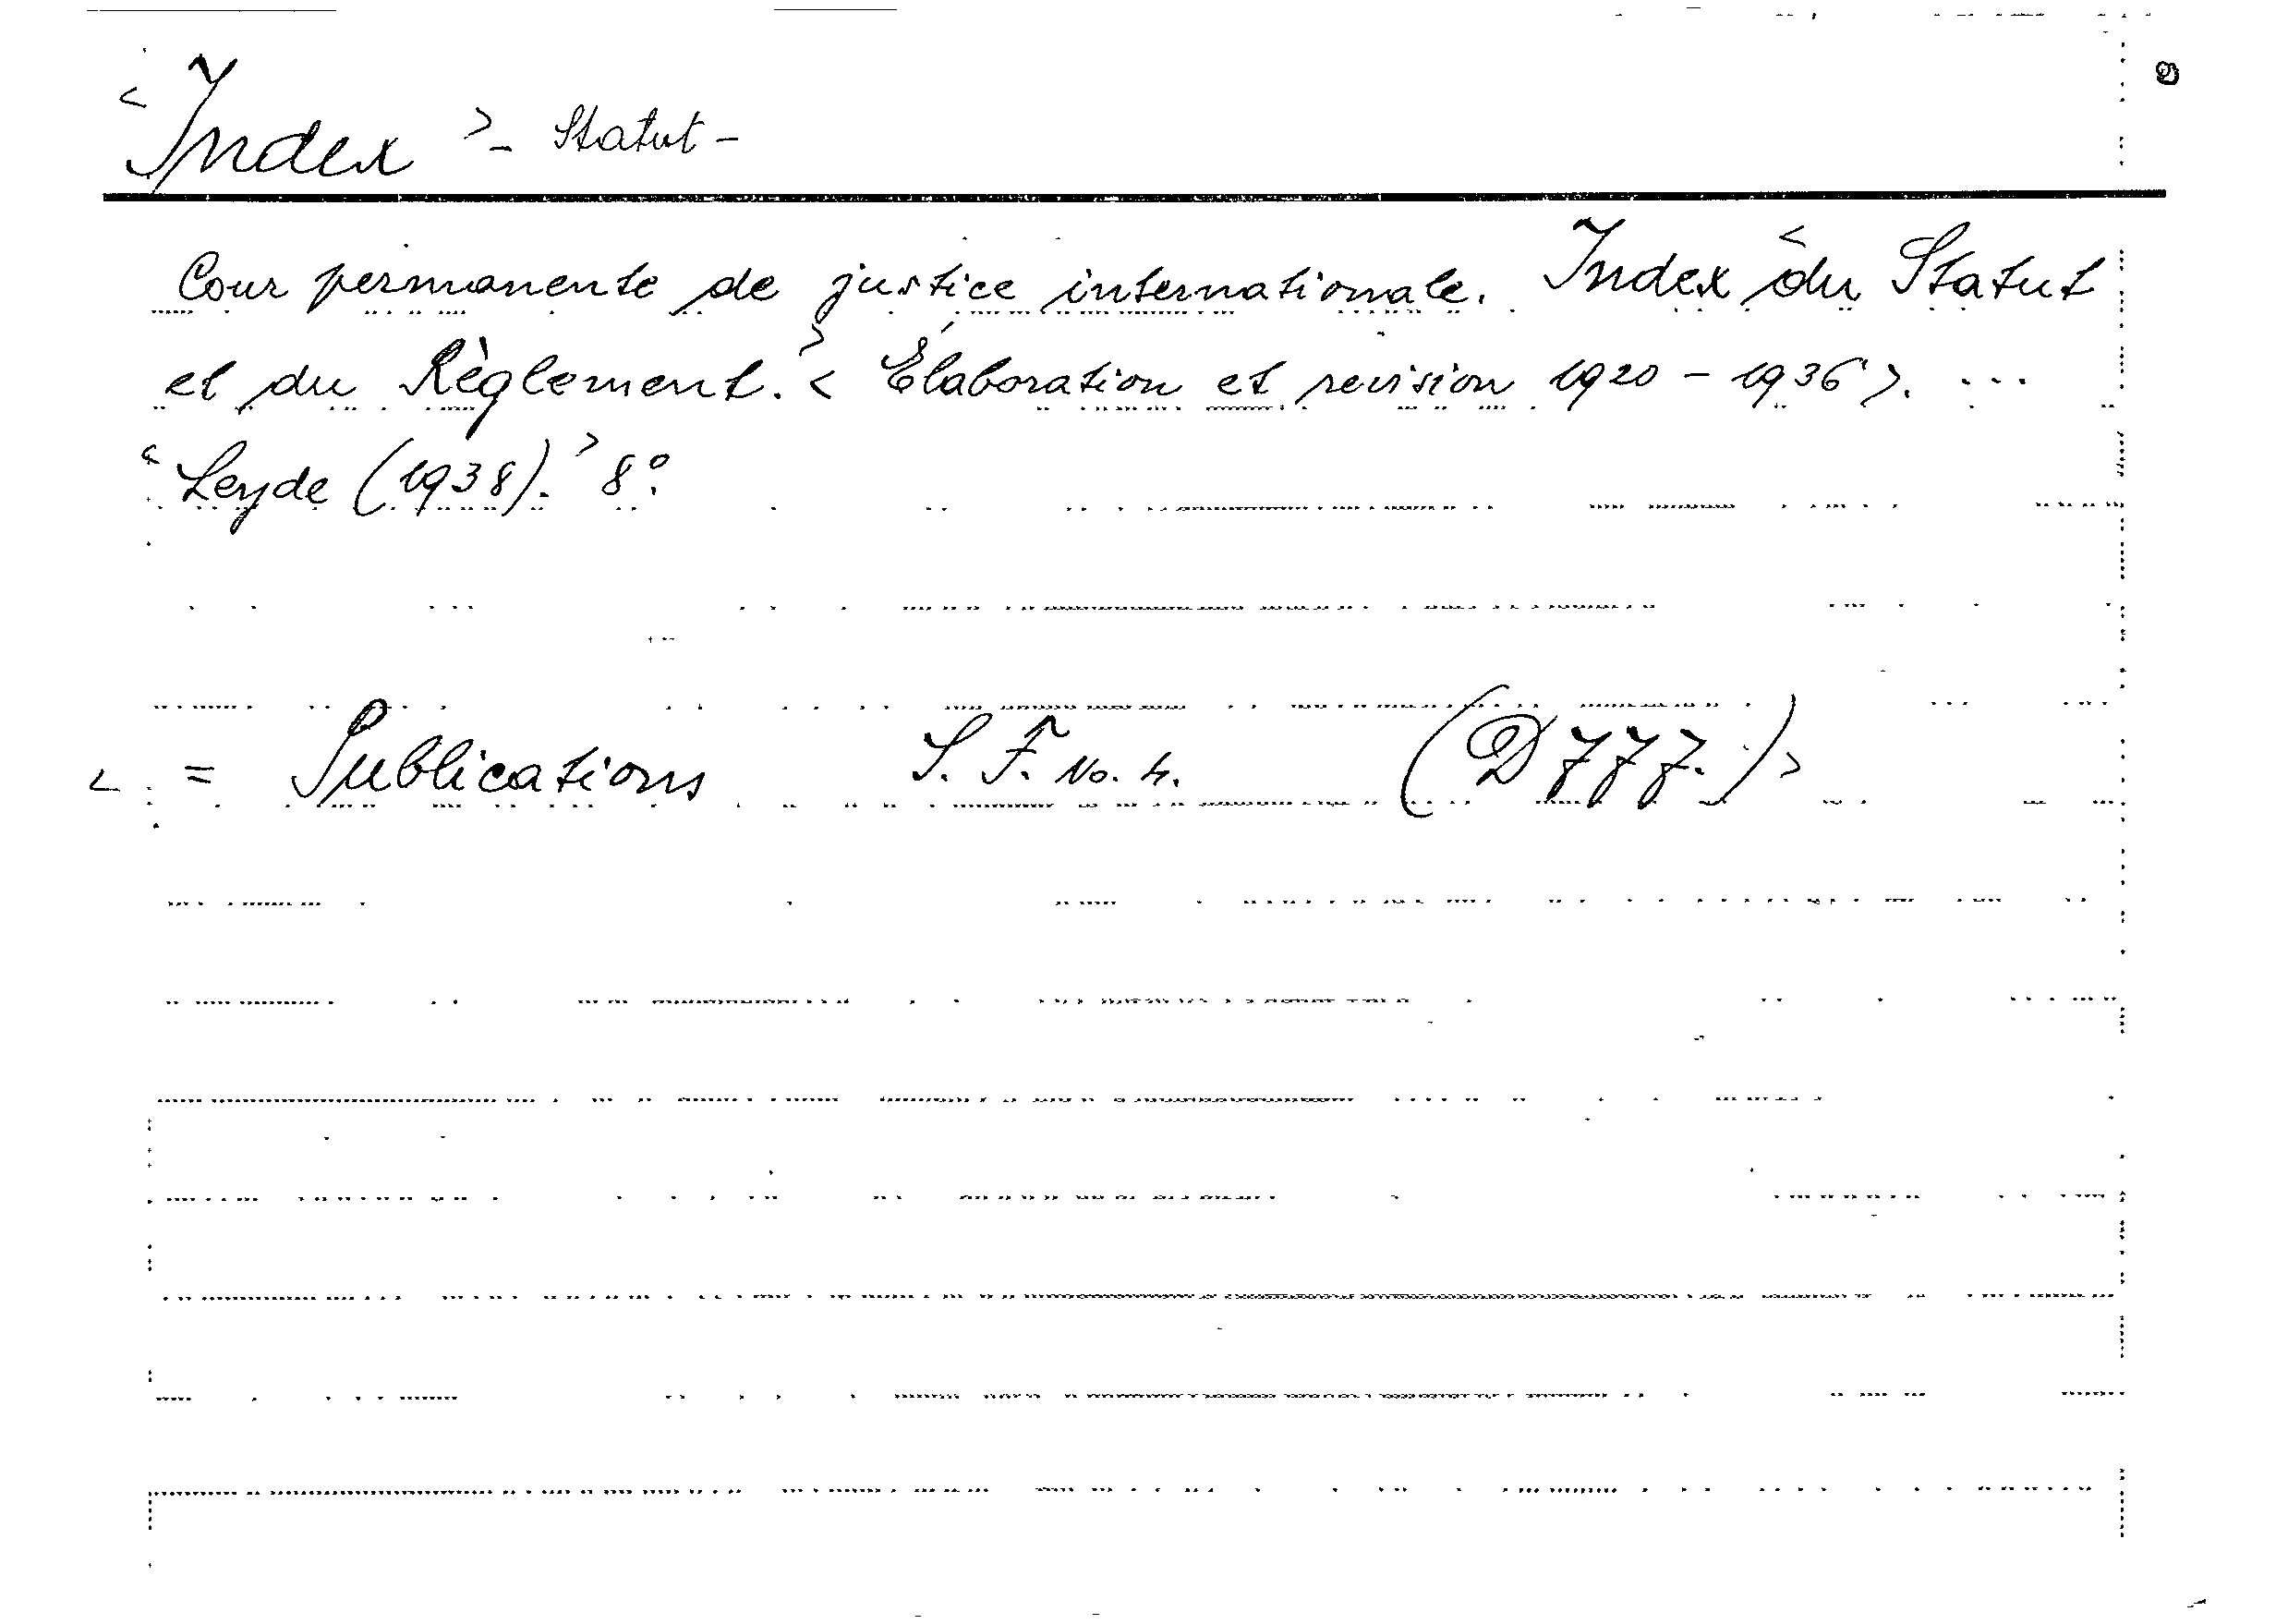 < Index > - Statut -
Cour permanente de justice internationale. Index < du Statut
et du Règlement. > < Élaboration et revision 1920 - 1936 >. ...
< Leyde (1938). > 8º.
< = Publications S. F. No. 4. (D 777.) >